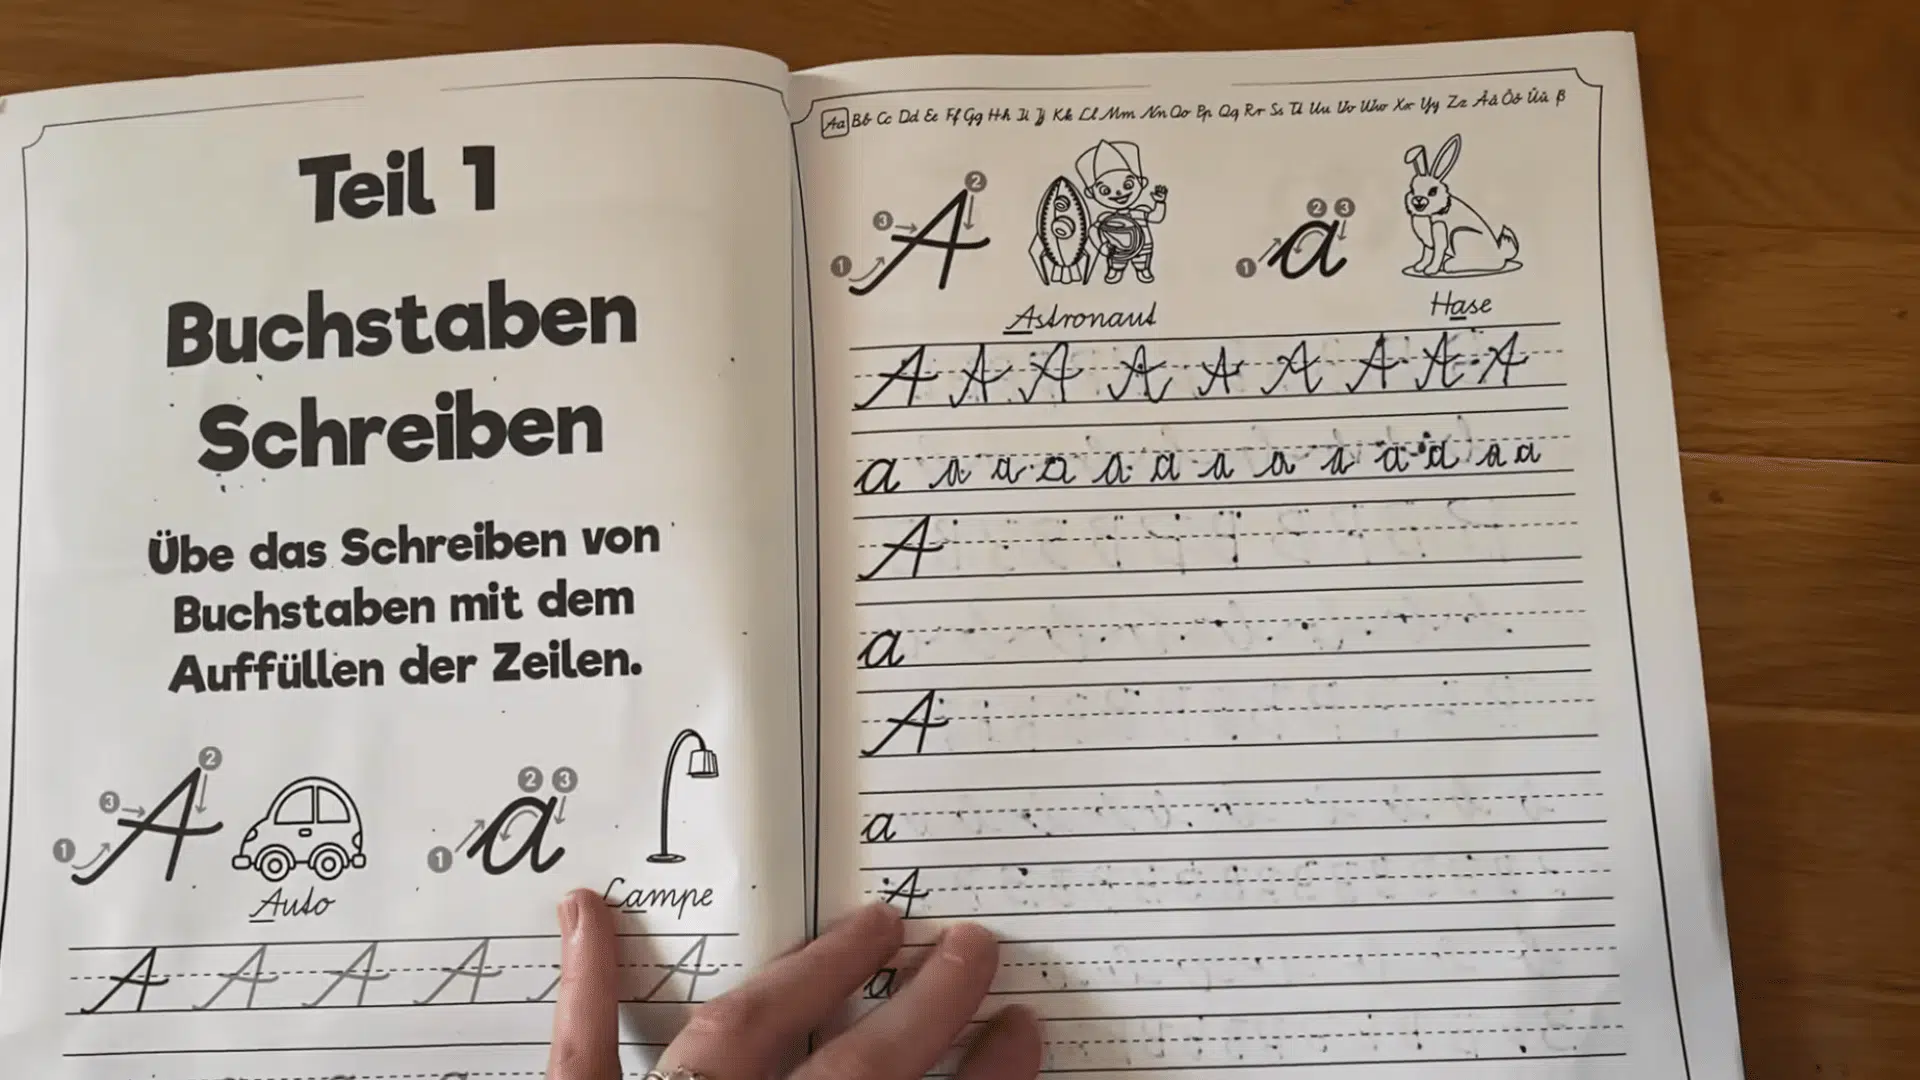 Teil 1
Buchstaben
Schreiben
Übe das Schreiben von
Buchstaben mit dem
Auffüllen der Zeilen.
3 2 1 A
1 2 3 a
Auto
Lampe
A A A A A A
Aa Bb Cc Dd Ee Ff Gg Hh Ii Jj Kk Ll Mm Nn Oo Pp Qq Rr Ss Tt Uu Vv Ww Xx Yy Zz Ää Öö Üü ß
3 2 1 A
1 2 3 a
Astronaut
Hase
A A A A A A A A A
a a a a a a a a a a a a a
A
a
A
a
A
a